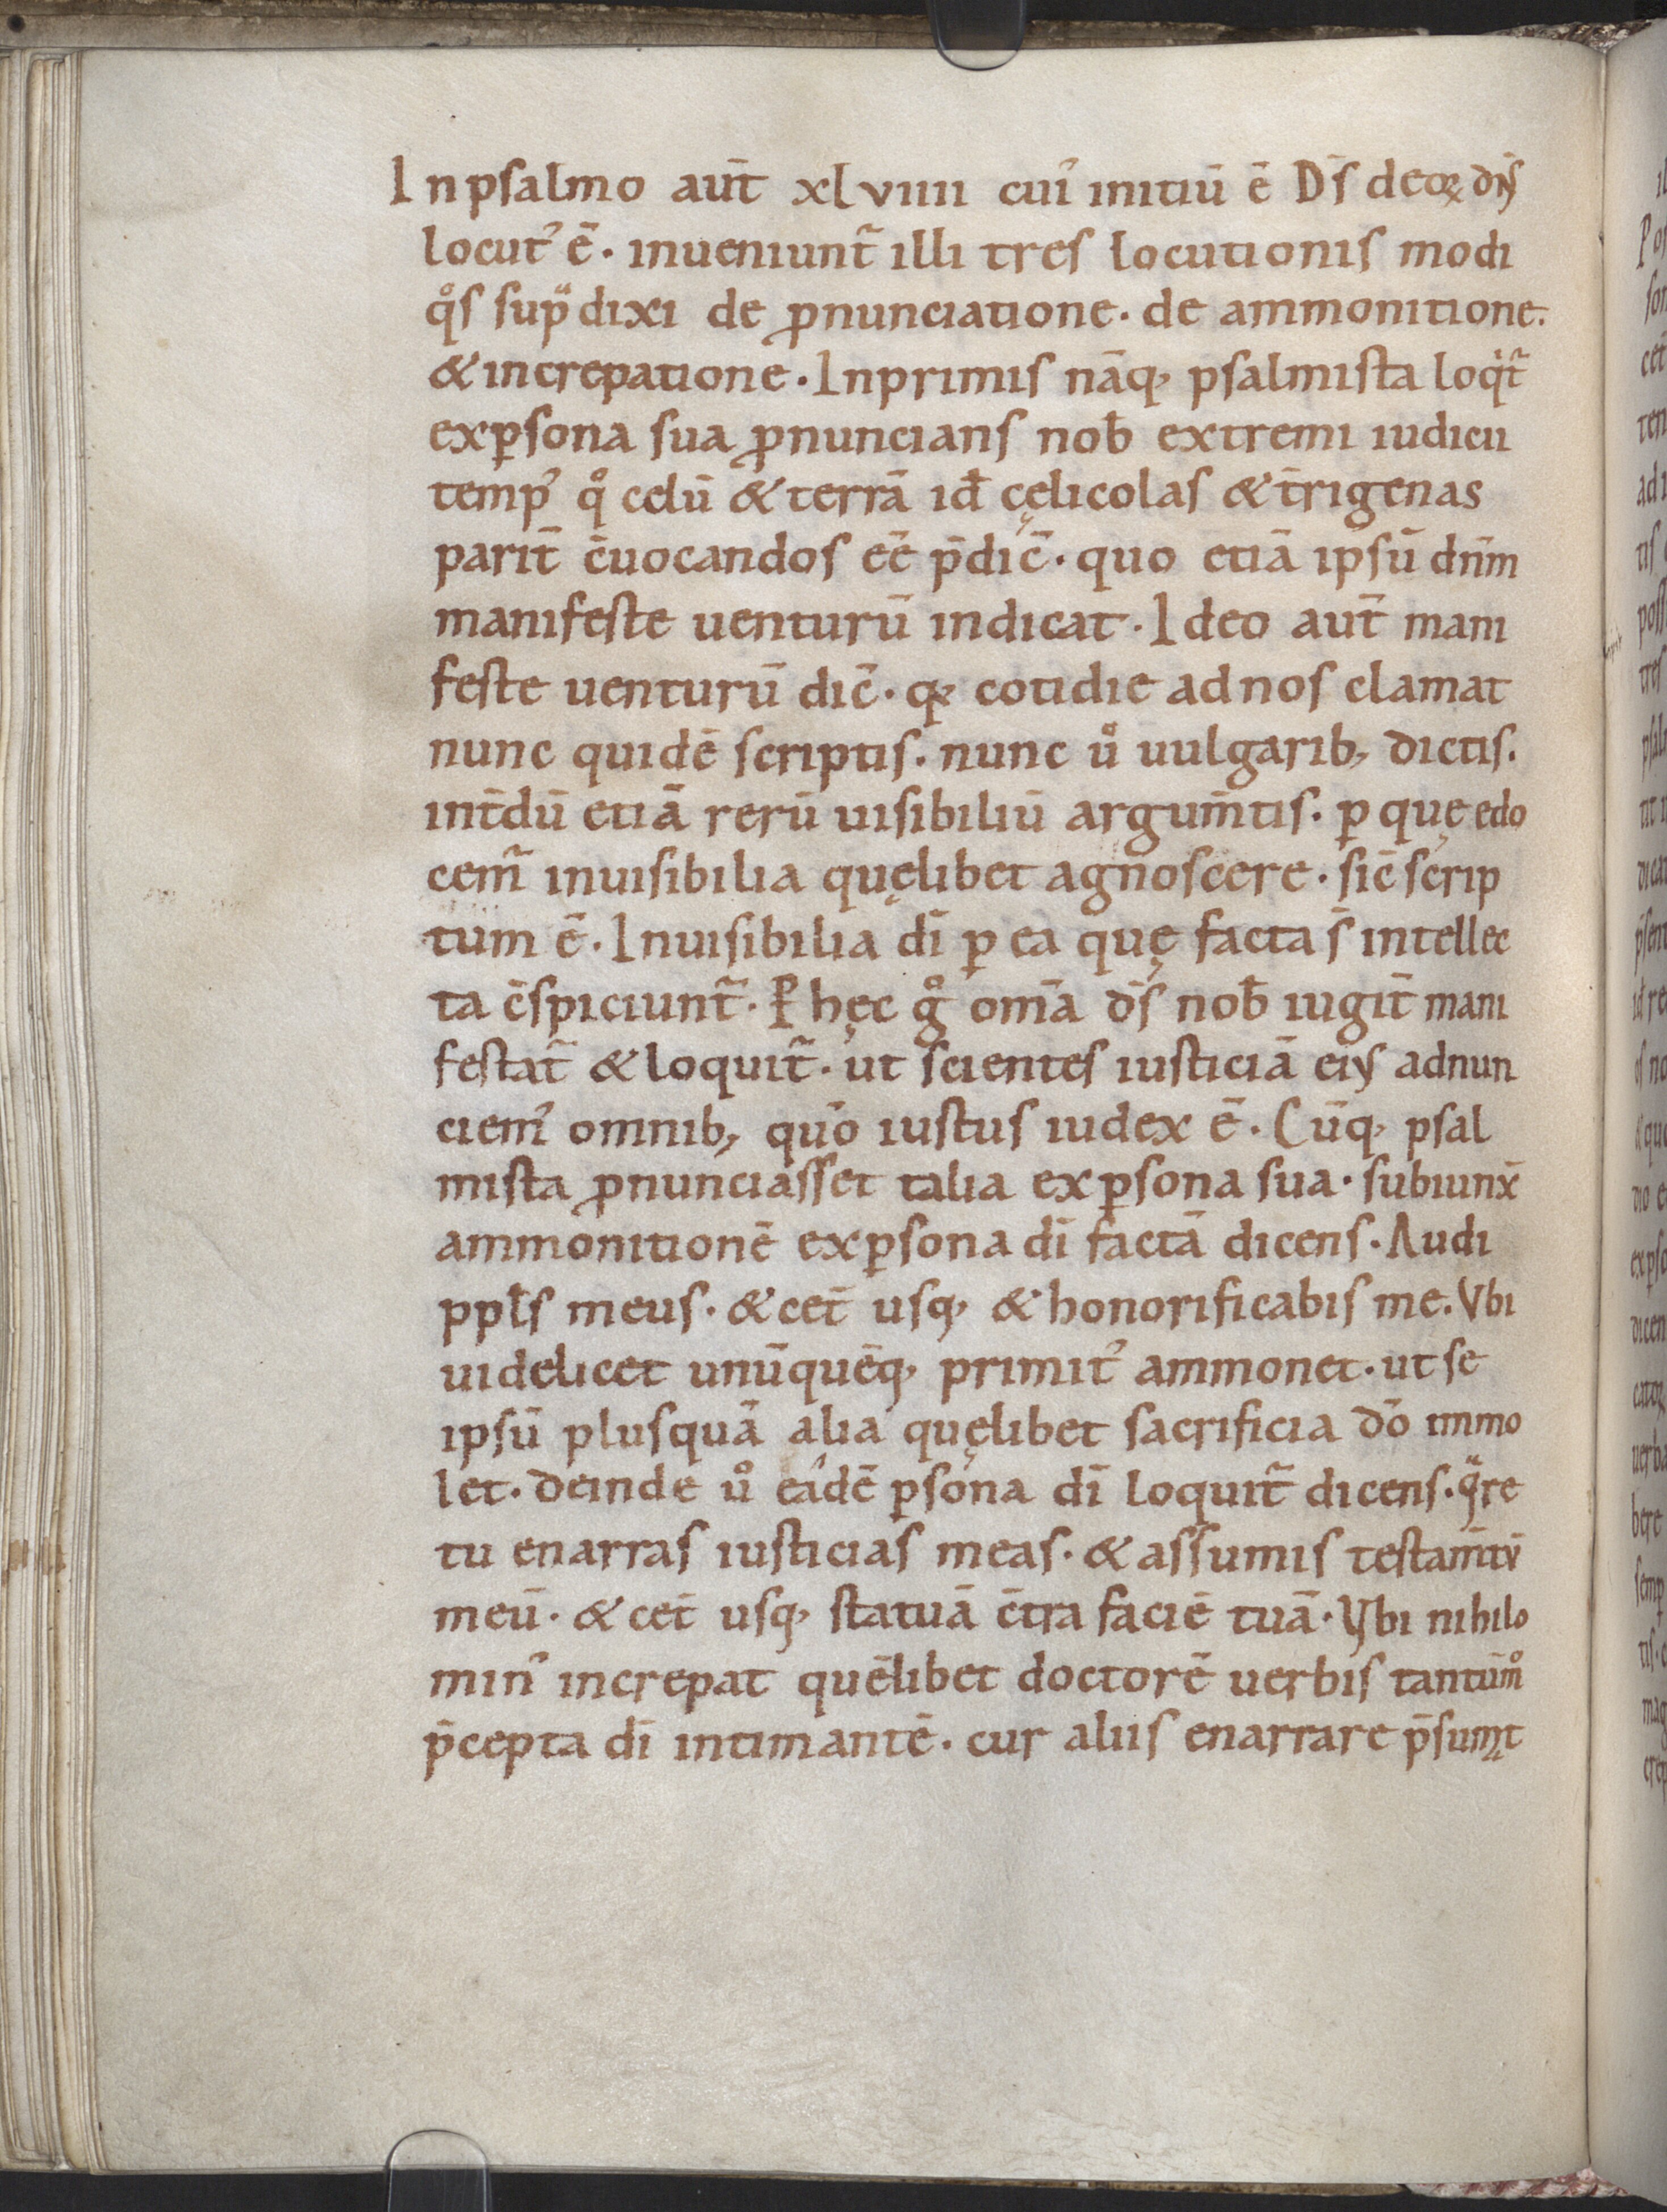 In psalmo aut̄ xlviiii cuiꝰ initiū ē Ds̄ deoꝝ dn̄s
locutꝰ ē · inueniunt̃ illi tres locutionis modi
qͦs supͣ dixi de ꝓnunciatione · de ammonitione ·
& increpatione · Inprimis nāq; psalmista loqͥt̃
ex ꝑsona sua ꝓnuncians nob̄ extremi iudicii
tempꝰ qͦ celū & terrā id̄ cęlicolas & t̄rigenas
parit̄ c̄uocandos ēē p̄dic̄ · quo etiā ipsū dn̄m
manifeste uenturū indicat · Ideo aut̄ mani
feste uenturū dic̄ · q; cotidie ad nos clamat
nunc quidē scriptis · nunc uͦ uulgarib; dictis ·
int̄dū etiā rerū uisibiliū argum̄tis · ꝑ quę edo
cem̃ inuisibilia quęlibet agnoscere · sic̄ scrip
tum ē · Inuisibilia dī ꝑ ea quę facta s̄ intellec
ta c̄spiciunt̃ · Ꝑ hęc gͦ om̄a ds̄ nob̄ iugit̄ mani
festat̃ & loquit̃ · ut scientes iusticiā eiꝰ adnun
ciemꝰ omnib; quō iustus iudex ē · Cūq; psal
mista ꝓnunciasset talia ex ꝑsona sua · subiunx̄
ammonitionē ex ꝑsona dī factā dicens · Audi
ppl̄s meus · & cet̄ usq; & honorificabis me · Vbi
uidelicet unūquēq; primitꝰ ammonet · ut se
ipsū plusquā alia quęlibet sacrificia dō immo
let · deinde uͦ eadē ꝑsona dī loquit̃ dicens · qͣre
tu enarras iusticias meas · & assumis testam̄tū
meū · & cet̄ usq; statuā c̄tra faciē tuā · Vbi nihilo
minꝰ increpat quēlibet doctorē uerbis tantūmͦ
p̄cepta dī intimantē · cur aliis enarrare p̄sumit